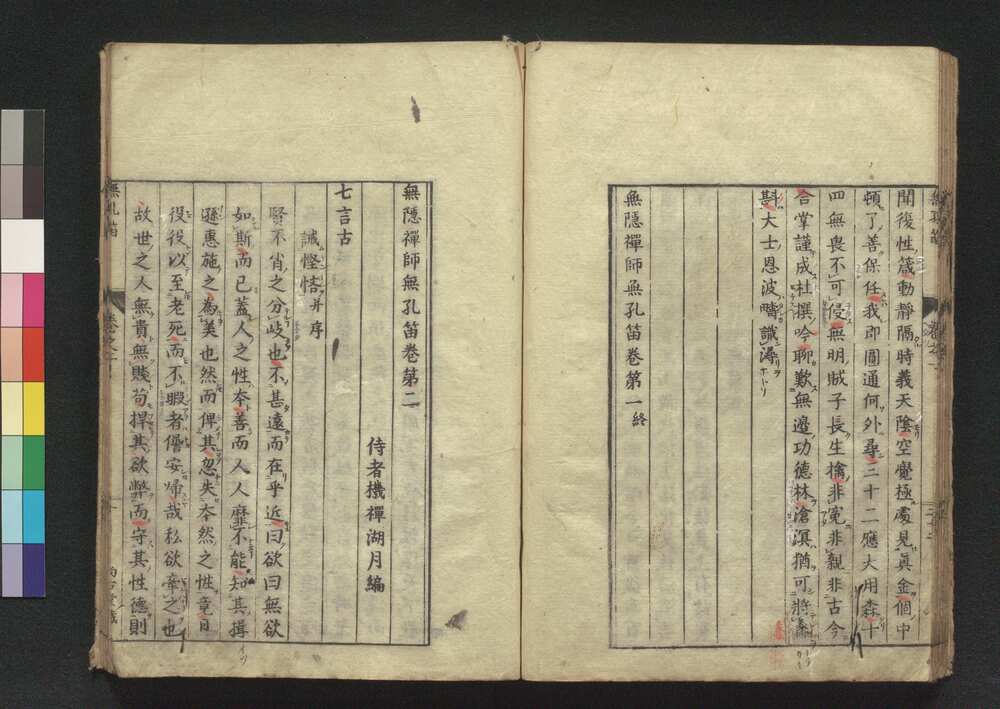 聞復性箴動靜隔時義天陰空覺極處見眞金個中
頓了善保任我即圓通何外尋二十二應大用森十
四無畏不可侵無明賊子長生擒非寃非親非古今
合掌謹成杜撰吟聊歎無邊功德林滄溟猶可將蠡
斟大士恩波疇識潯
無隱禪師無孔笛卷第一終
無隱禪師無孔笛卷第二
侍者機禪湖月編
七言古
誡慳悋并序
賢不肖之分歧也不甚遠而在乎近曰欲曰無欲
如斯而已蓋人之性本善而人人靡不能知其揖
遜惠施之為美也然而俾其忽失本然之性竟日
役役以至老死而不暇者僧安歸哉私欲牽之也
故世之人無貴無賤苟捍其欲幣而守其性德則
無孔笛
卷之二